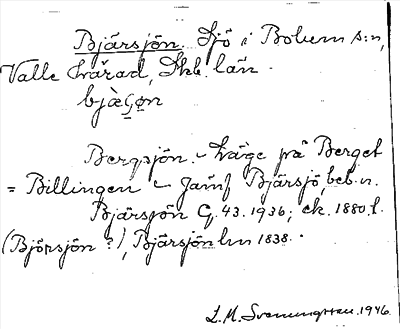 Bjärsjön. Sjö i Bolum s:n,
Valle härad, Skb. län.
bjæʂøn
Bergsjön. – Läge på Berget
= Billingen – Jämf Bjärsjö, beb.n.
Bjärsjön G. 43. 1936; ek. 1880.t.
(Bjö̈rsjön ?), Bjärsjön hm 1838.
L. M. Svenungsson. 1946.